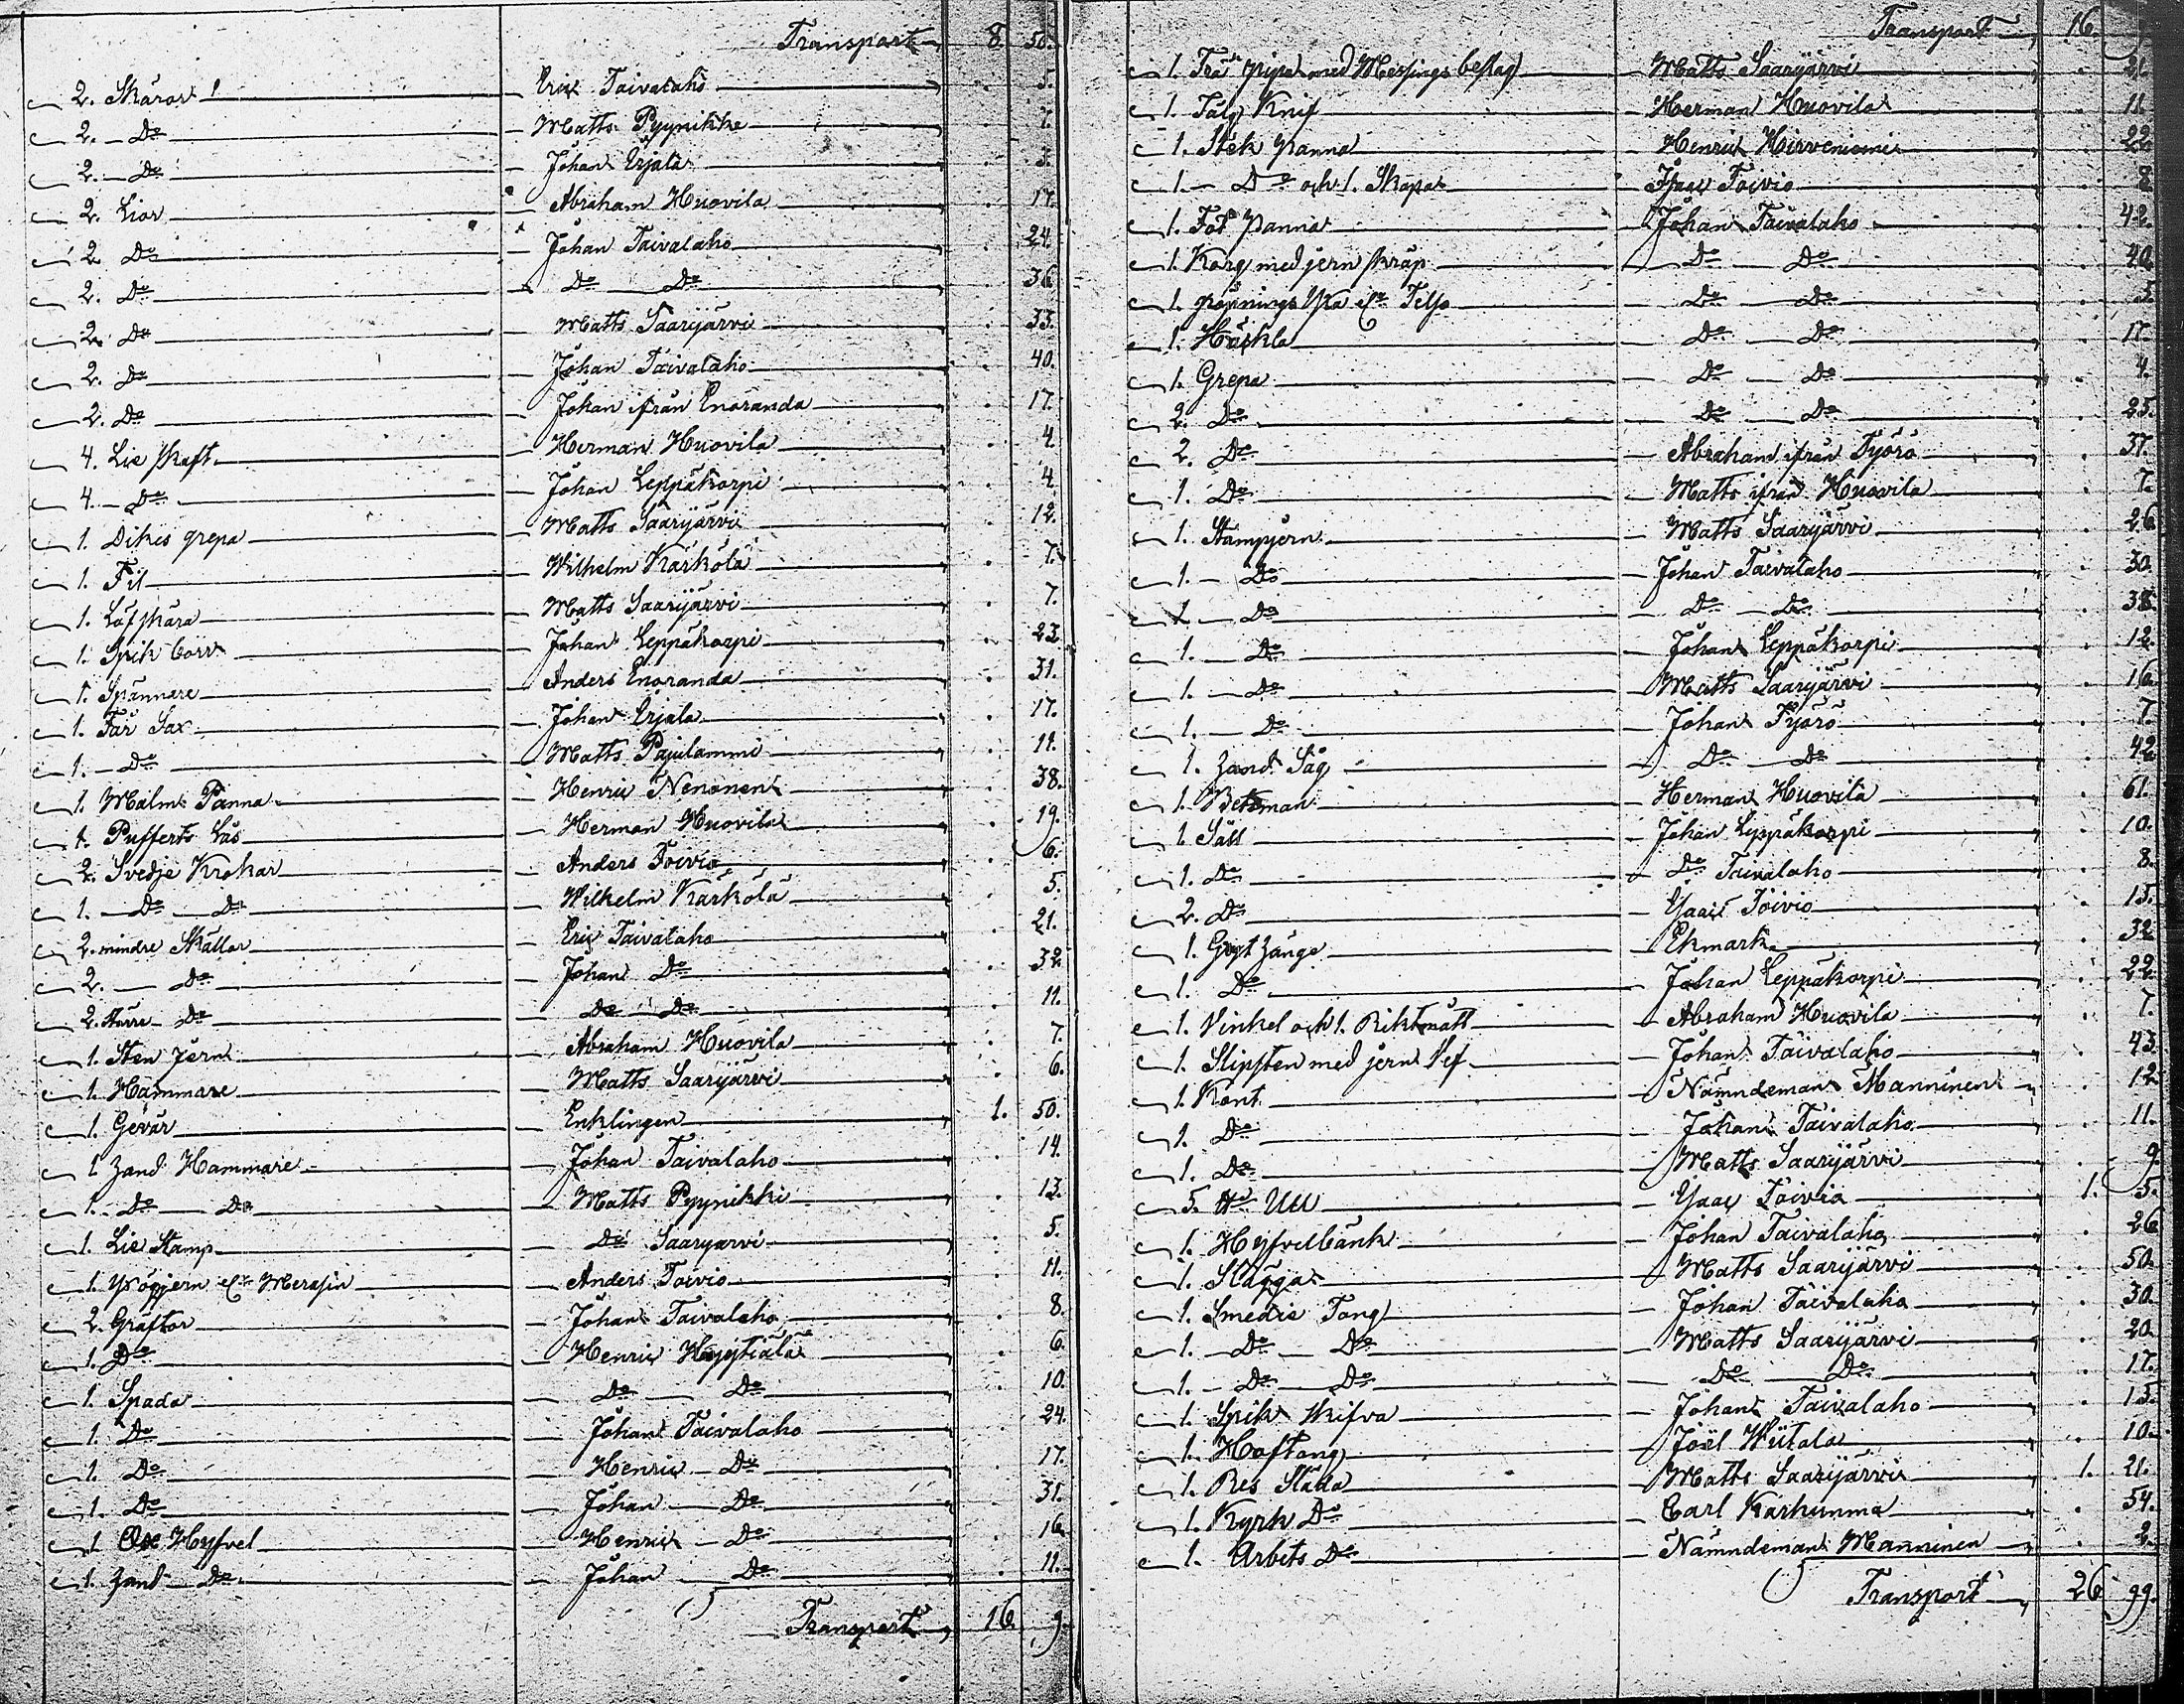 Transport 8. 50.
2. Skäror Eric Taivalaho 5.
2. Do Matts Pyynikke 7.
2. Do Johan Erjala 3.
2. Lior Abraham Huovila 17.
2. Do Johan Taivalaho 24.
2. Do Do Do 36.
2. Do Matts Saarijärvi 33.
2. Do Johan Taivalaho 40.
2. Do Johan ifrån Enoranda 17.
4. Lie skaft Herman Huovila 4.
4. Do Johan Leppäkorpi 4.
1. Dikes grepa Matts Saarijärvi 12.
1. Fil Wilhelm Karkola 7.
1. Löfskära Matts Saarijärvi 7.
1. Spik borr Johan Leppäkorpi 23.
1. Spännare Anders Enoranda 31.
1. Får Sax Johan Erjala 17.
1. Do Matts Pajulammi 11.
1. Malm Panna Henric Nenonen 38.
1. Pufferts Lås Herman Huovila 19.
2. Svedje Krokar Anders Toivio 6.
1. Do Do Wilhelm Karkola 5.
2. mindre Skällor Eric Taivalaho 21.
2. Do Johan Do 32.
2. större Do Do Do 11.
1. Sten Jern Abraham Huovila 7.
1. Hammare Matts Saarijärvi 6.
1. Gevär Enklingen 1. 50.
1. Zand Hammare Johan Taivalaho 14.
1. Do Do Matts Pyynikki 13.
1. Lie Stamp Do Saarijärvi 5.
1. Anders Toivio 11.
2. Gräftor Johan Taivalaho 8.
1. Do Henric Höytiälä 6.
1. Spada Do Do 10.
1. Do Johan Taivalaho 24.
1. Do Henric Do 17.
1. Do Johan Do 31.
1. Ox Hyfvel Henric Do 16.
1. Zand Do Johan Do 11.
Transport 16. 9.
Transport 16. 9.
1. Trä pipa med Messings beslag Matts Saarijärvi 21.
1. Tälg Knif Herman Huovila 11.
1. Stek panna Henric Hirveniemi 22.
1. Do och 1. Skopa Isaac Toivio 8.
1. Fot Panna Johan Taivalaho 42.
1. Korg med jern skräp Do Do 40.
1. Do Do 5.
1. Häckla Do Do 17.
1. Grepa Do Do 4.
2. Do Do Do 25.
2. Do Abraham ifrån Työrö 37.
1. Do Matts ifrån Huovila 7.
1. Stampjern Matts Saarijärvi 26.
1. Do Johan Taivalaho 30.
1. Do Do Do 38.
1. Do Johan Leppäkorpi 12.
1. Do Matts Saarijärvi 16.
1. Do Johan Työrö 7.
1. Zand Såg Do Do 42.
1. Betsman Herman Huovila 61.
1. Såll Johan Leppäkorpi 10.
1. Do Do Taivalaho 8.
2. Do Isaac Toivio 15.
1. Ekmark 32.
1. Do Johan Leppäkorpi 22.
1. Vinkel och 1. Riktmått Abraham Huovila 7.
1. Slipsten med jern Vef Johan Taivalaho 43.
1. Kont Nämndeman Manninen 12.
1. Do Johan Taivalaho 11.
1. Do Matts Saarijärvi 9.
5. Ull Isaac Toivio 1. 5.
1. Hyfvelbänk Johan Taivalaho 26.
1. Slägga Matts Saarijärvi 50.
1. Smedje Tång Johan Taivalaho 30.
1. Do Do Matts Saarijärvi 20.
1. Do Do Do Do 17.
1. Spik skifva Johan Taivalaho 15.
1. Hoftång Joel Wiitala 10.
1. Res Släda Matts Saarijärvi 1. 21.
1. Kyrk Do Carl Karhunma 54.
1. Arbets Do Nämndeman Manninen 2.
Transport 26. 99.